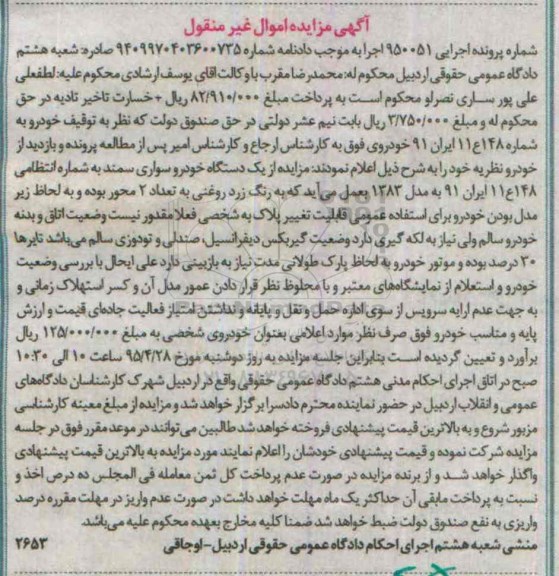 آگهی مزایده اموال غیر منقول
شماره پرونده اجرایی ۹۵۰۰۵۱ اجرا به موجب دادنامه شماره ۹۴۰۹۹۷۰۴۰۳۶۰۰۷۳۵ صادره: شعبه هشتم
دادگاه عمومی حقوقی اردبیل محکوم له: محمدرضا مقرب با وکالت اقای یوسف ارشادی محکوم علیه: لطفعلی
علی پور ساری نصرلو محکوم است به پرداخت مبلغ ۸۲/۹۱۰/۰۰۰ ریال + خسارت تاخیر تادیه در حق
محکوم له و مبلغ ۳/۷۵۰/۰۰۰ ریال بابت نیم عشر دولتی در حق صندوق دولت که نظر به توقیف خودرو به
شماره ۱۴۸ع۱۱ ایران ۹۱ خودروی فوق به کارشناس ارجاع و کارشناس امیر پس از مطالعه پرونده و بازدید از
خودرو نظریه خود را به شرح ذیل اعلام نمودند: مزایده از یک دستگاه خودرو سواری سمند به شماره انتظامی
۱۴۸ع۱۱ ایران ۹۱ به مدل ۱۳۸۳ بعمل می آید که به رنگ زرد روغنی به تعداد ۲ محور بوده و به لحاظ زیر
مدل بودن خودرو برای استفاده عمومی قابلیت تغییر پلاک به شخصی فعلا مقدور نیست وضعیت اتاق و بدنه
خودرو سالم ولی نیاز به لکه گیری دارد وضعیت گیربکس دیفرانسیل، صندلی و تودوزی سالم می‌باشد تایرها
۳۰ درصد بوده و موتور خودرو به لحاظ پارک طولانی مدت نیاز به بازبینی دارد علی ایحال با بررسی وضعیت
خودرو و استعلام از نمایشگاه‌های معتبر و با ملحوظ نظر قرار دادن عمور مدل آن و کسر استهلاک زمانی و
به جهت عدم ارایه سرویس از سوی اداره حمل و نقل و پایانه و نداشتن امتیاز فعالیت جاده‌ای قیمت و ارزش
پایه و مناسب خودرو فوق صرف نظر موارد اعلامی بعنوان خودروی شخصی به مبلغ ۱۲۵/۰۰۰/۰۰۰ ریال
برآورد و تعیین گردیده است بنابراین جلسه مزایده به روز دوشنبه مورخ ۹۵/۴/۲۸ ساعت ۱۰ الی ۱۰:۳۰
صبح در اتاق اجرای احکام مدنی هشتم دادگاه عمومی حقوقی واقع در اردبیل شهرک کارشناسان دادگاه‌های
عمومی و انقلاب اردبیل در حضور نماینده محترم دادسرا برگزار خواهد شد و مزایده از مبلغ معینه کارشناسی
مزبور شروع و به بالاترین قیمت پیشنهادی فروخته خواهد شد طالبین می‌توانند در موعد مقرر فوق در جلسه
مزایده شرکت نموده و قیمت پیشنهادی خودشان را اعلام نمایند مورد مزایده به بالاترین قیمت پیشنهادی
واگذار خواهد شد و از برنده مزایده در صورت عدم پرداخت کل ثمن معامله فی المجلس ده درص اخذ و
نسبت به پرداخت مابقی آن حداکثر یک ماه مهلت خواهد داشت در صورت عدم واریز در مهلت مقرره درصد
واریزی به نفع صندوق دولت ضبط خواهد شد ضمنا کلیه مخارج بعهده محکوم علیه می‌باشد.
منشی شعبه هشتم اجرای احکام دادگاه عمومی حقوقی اردبیل-اوجاقی ۲۶۵۳